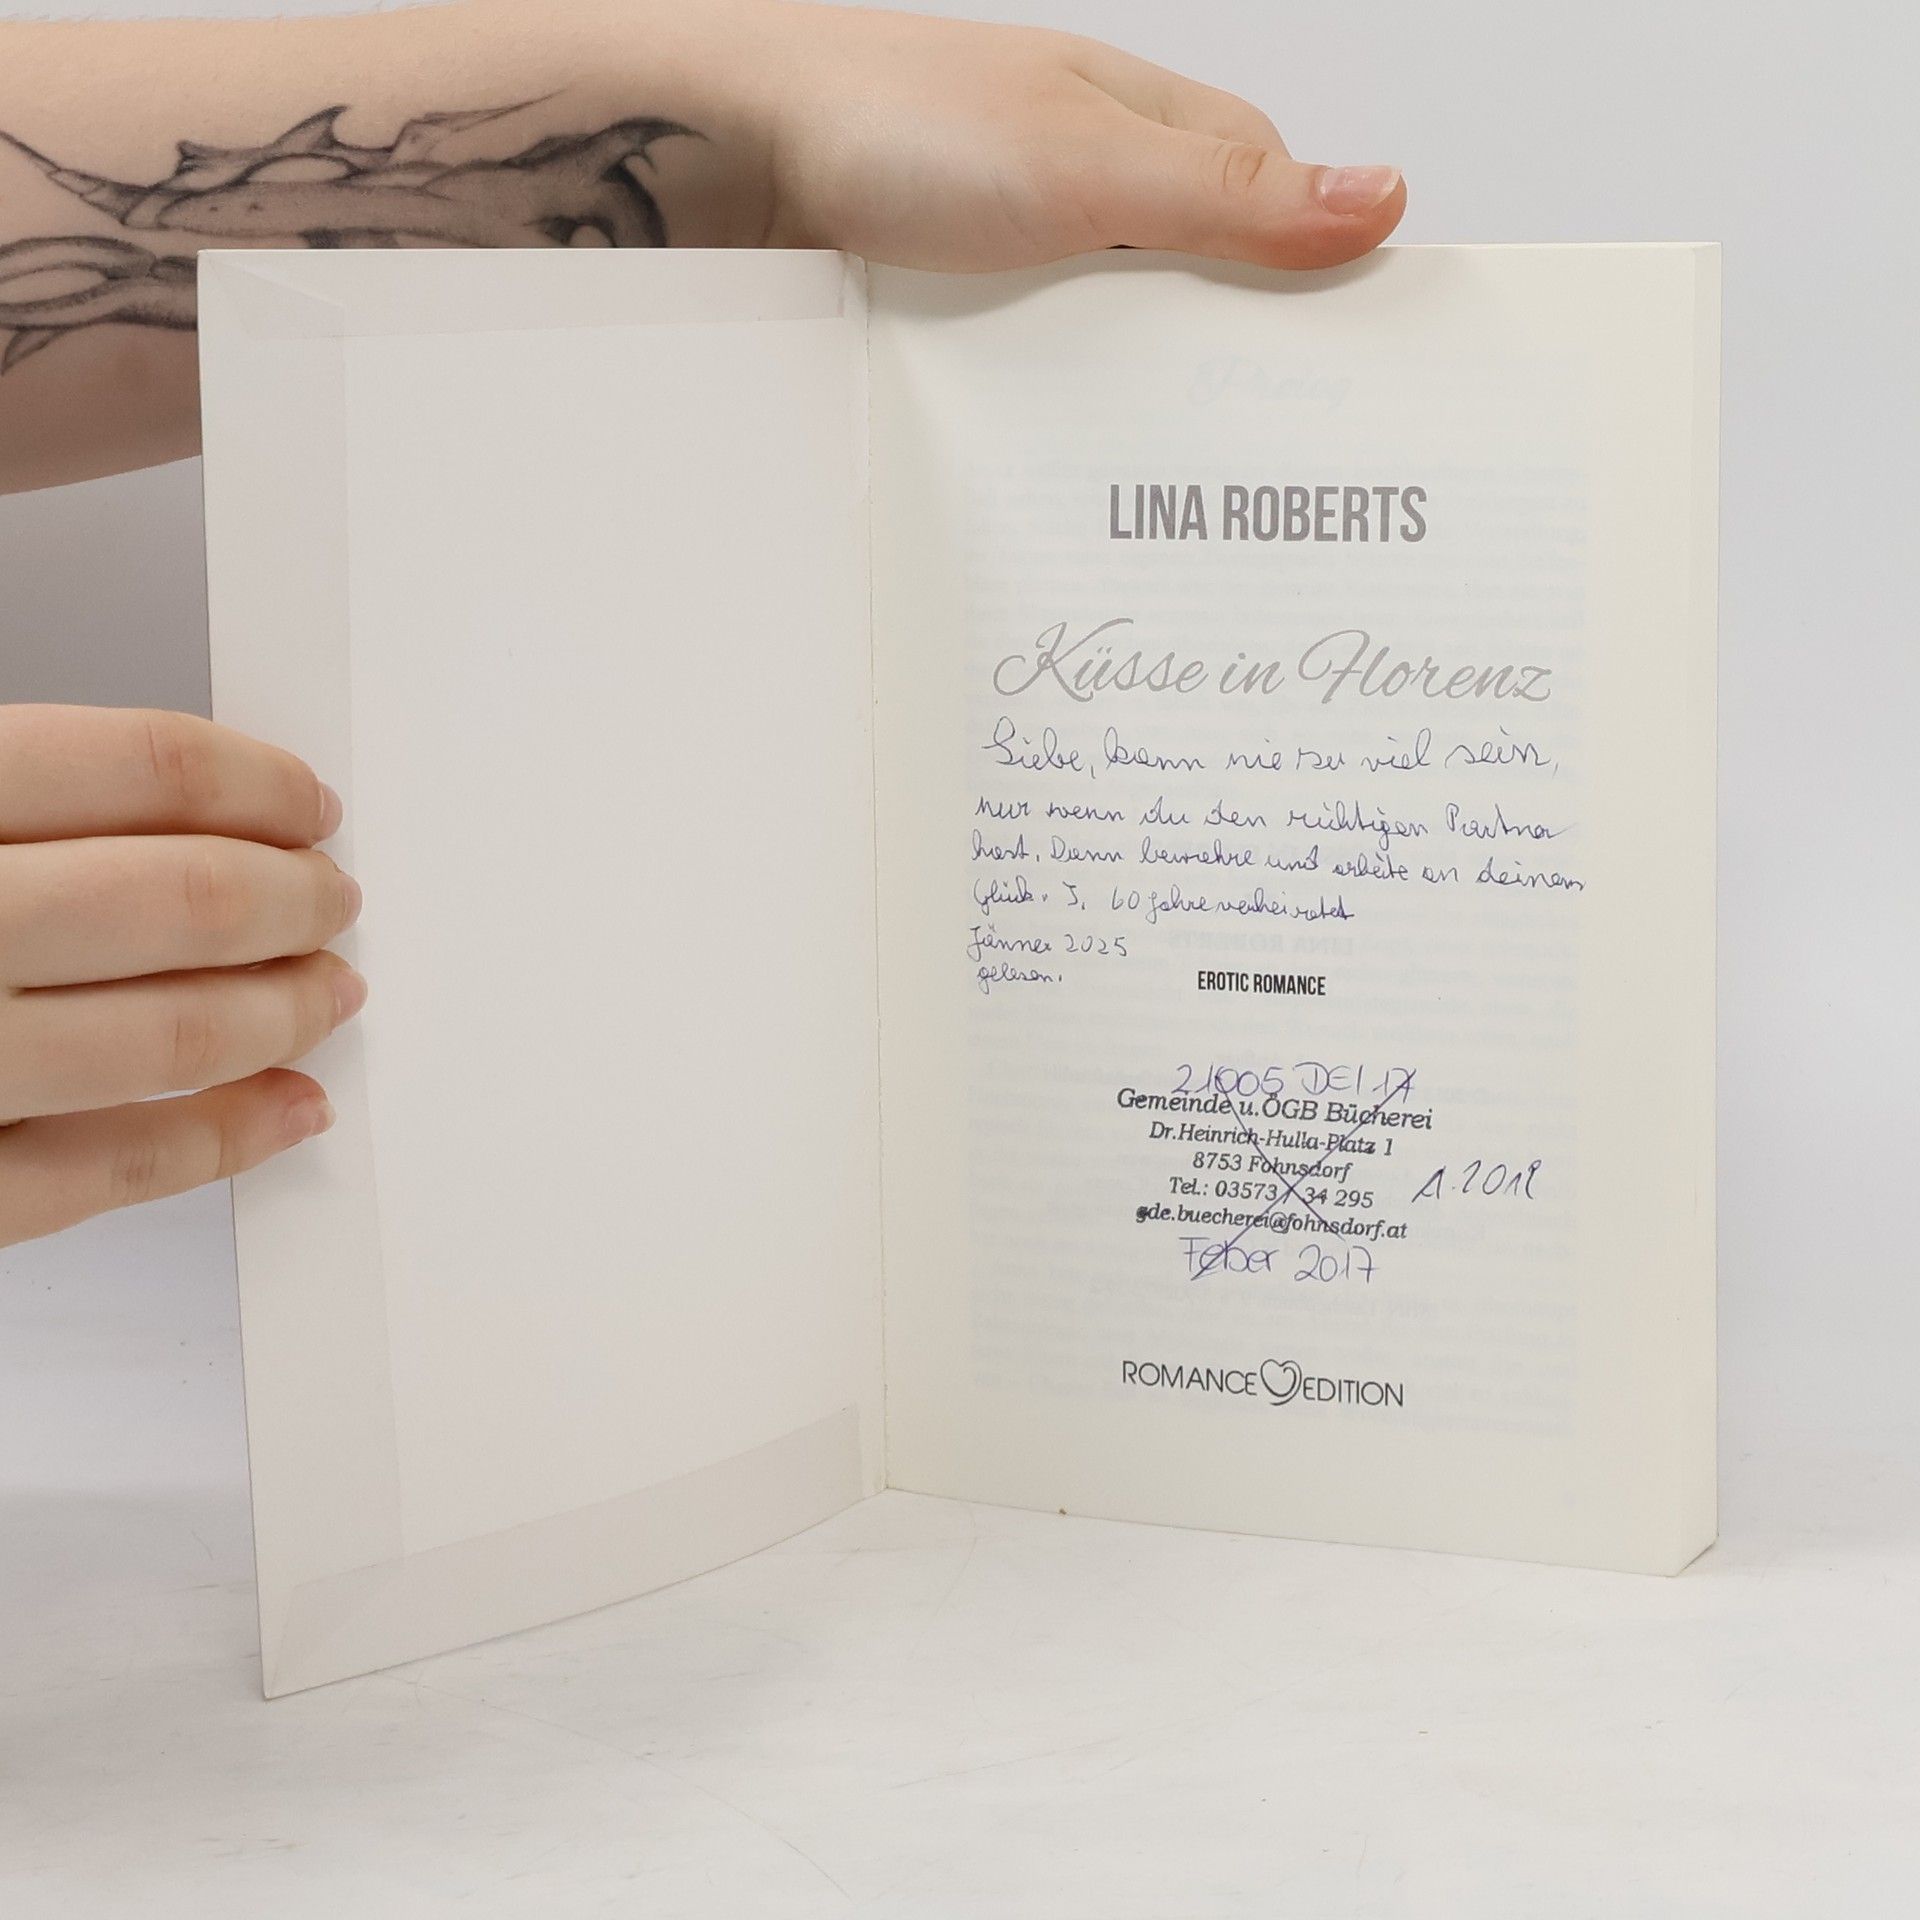 LINA ROBERTS
Küsse in Florenz
Liebe, kann nie zu viel sein,
nur wenn du den richtigen Partner
hast. Dann bewahre und arbeite an deinem
Glück. I. 60 Jahre verheiratet
Jänner 2025
gelesen.
EROTIC ROMANCE
21005 DE1 17
Gemeinde u.ÖGB Bücherei
Dr.Heinrich-Hulla-Platz 1
8753 Fohnsdorf
Tel.: 03573 / 34 295
gde.buecherei@fohnsdorf.at
Feber 2017
ROMANCE EDITION